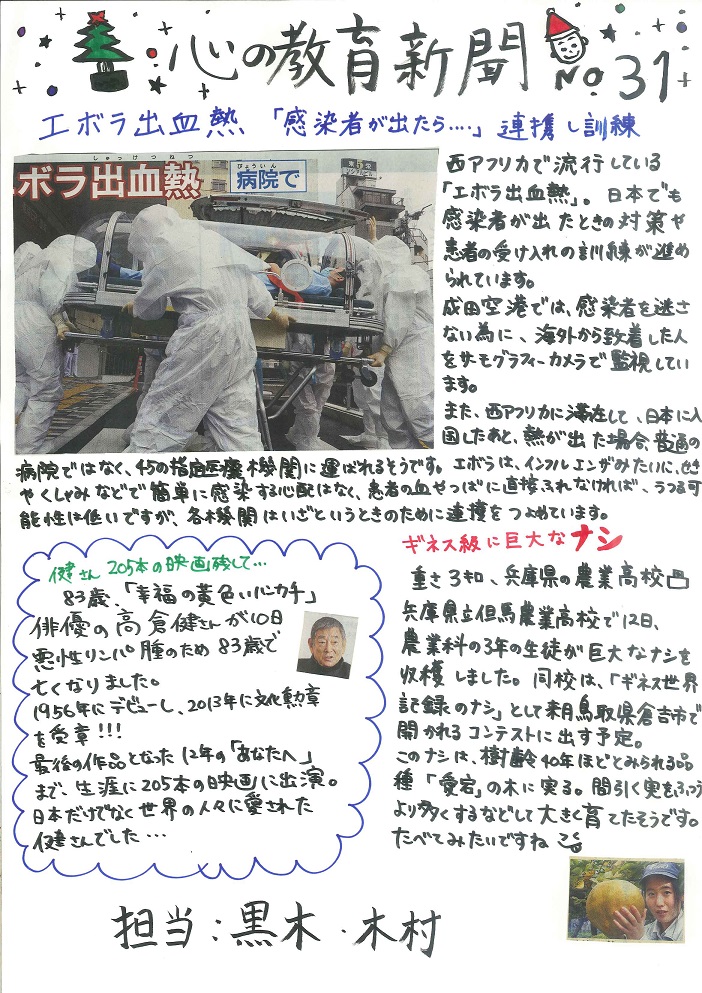 心の教育新聞 No.31
エボラ出血熱 「感染者が出たら....」連携し訓練
しゅっけつねつ
エボラ出血熱
びょういん
病院で
西アフリカで流行している
「エボラ出血熱」。日本でも
感染者が出たときの対策や
患者の受け入れの訓練が進め
られています。
成田空港では、感染者を逃さ
ない為に、海外から到着した人
をサーモグラフィーカメラで監視してい
ます。
また、西アフリカに滞在して、日本に入
国したあと、熱が出た場合、普通の
病院ではなく、45の指定医療機関に運ばれるそうです。エボラは、インフルエンザみたいに、せき
やくしゃみなどで簡単に感染する心配はなく、患者の血やつばに直接ふれなければ、うつる可
能性は低いですが、各機関はいざというときのために連携をつよめています。
健さん 205本の映画残して…
83歳、「幸福の黄色いハンカチ」
俳優の高倉健さんが10日
悪性リンパ腫のため83歳で
亡くなりました。
1956年にデビューし、2013年に文化勲章
を受章!!!
最後の作品となった12年の「あなたへ」
まで、生涯に205本の映画に出演。
日本だけでなく世界の人々に愛された
健さんでした…
ギネス級に巨大なナシ
重さ3キロ、兵庫県の農業高校
兵庫県立但馬農業高校で12日、
農業科の3年の生徒が巨大なナシを
収穫しました。同校は、「ギネス世界
記録のナシ」として来月鳥取県倉吉市で
開かれるコンテストに出す予定。
このナシは、樹齢40年ほどとみられる品
種「愛宕」の木に実る。間引く実をふつう
より多くするなどして大きく育てたそうです。
たべてみたいですね
担当:黒木・木村